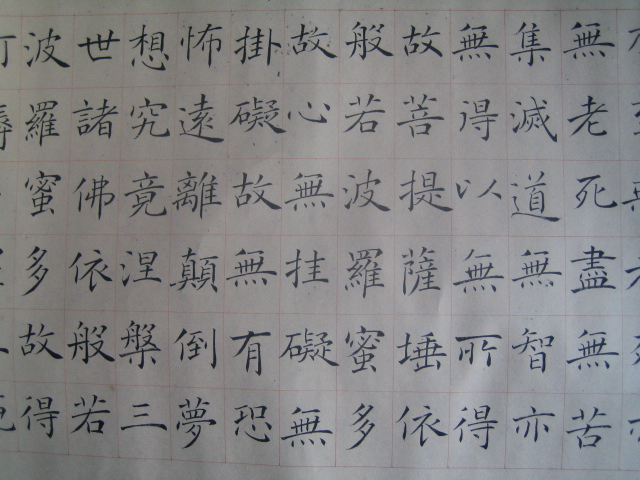 無老死盡無苦
集滅道無智亦
無得以無所得
故菩提薩埵依
般若波羅蜜多
故心無挂礙無
掛礙故無有恐
怖遠離顛倒夢
想究竟涅槃三
世諸佛依般若
波羅蜜多故得